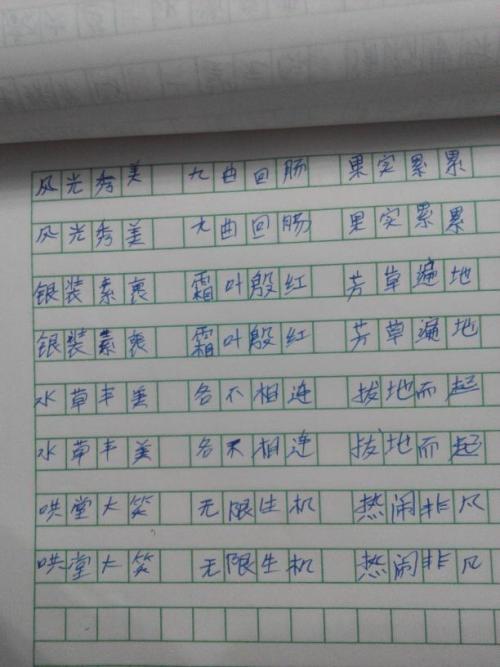 风光秀美 九曲回肠 果实累累
风光秀美 九曲回肠 果实累累
银装素裹 霜叶殷红 芳草遍地
银装素裹 霜叶殷红 芳草遍地
水草丰美 各不相连 拔地而起
水草丰美 各不相连 拔地而起
哄堂大笑 无限生机 热闹非凡
哄堂大笑 无限生机 热闹非凡